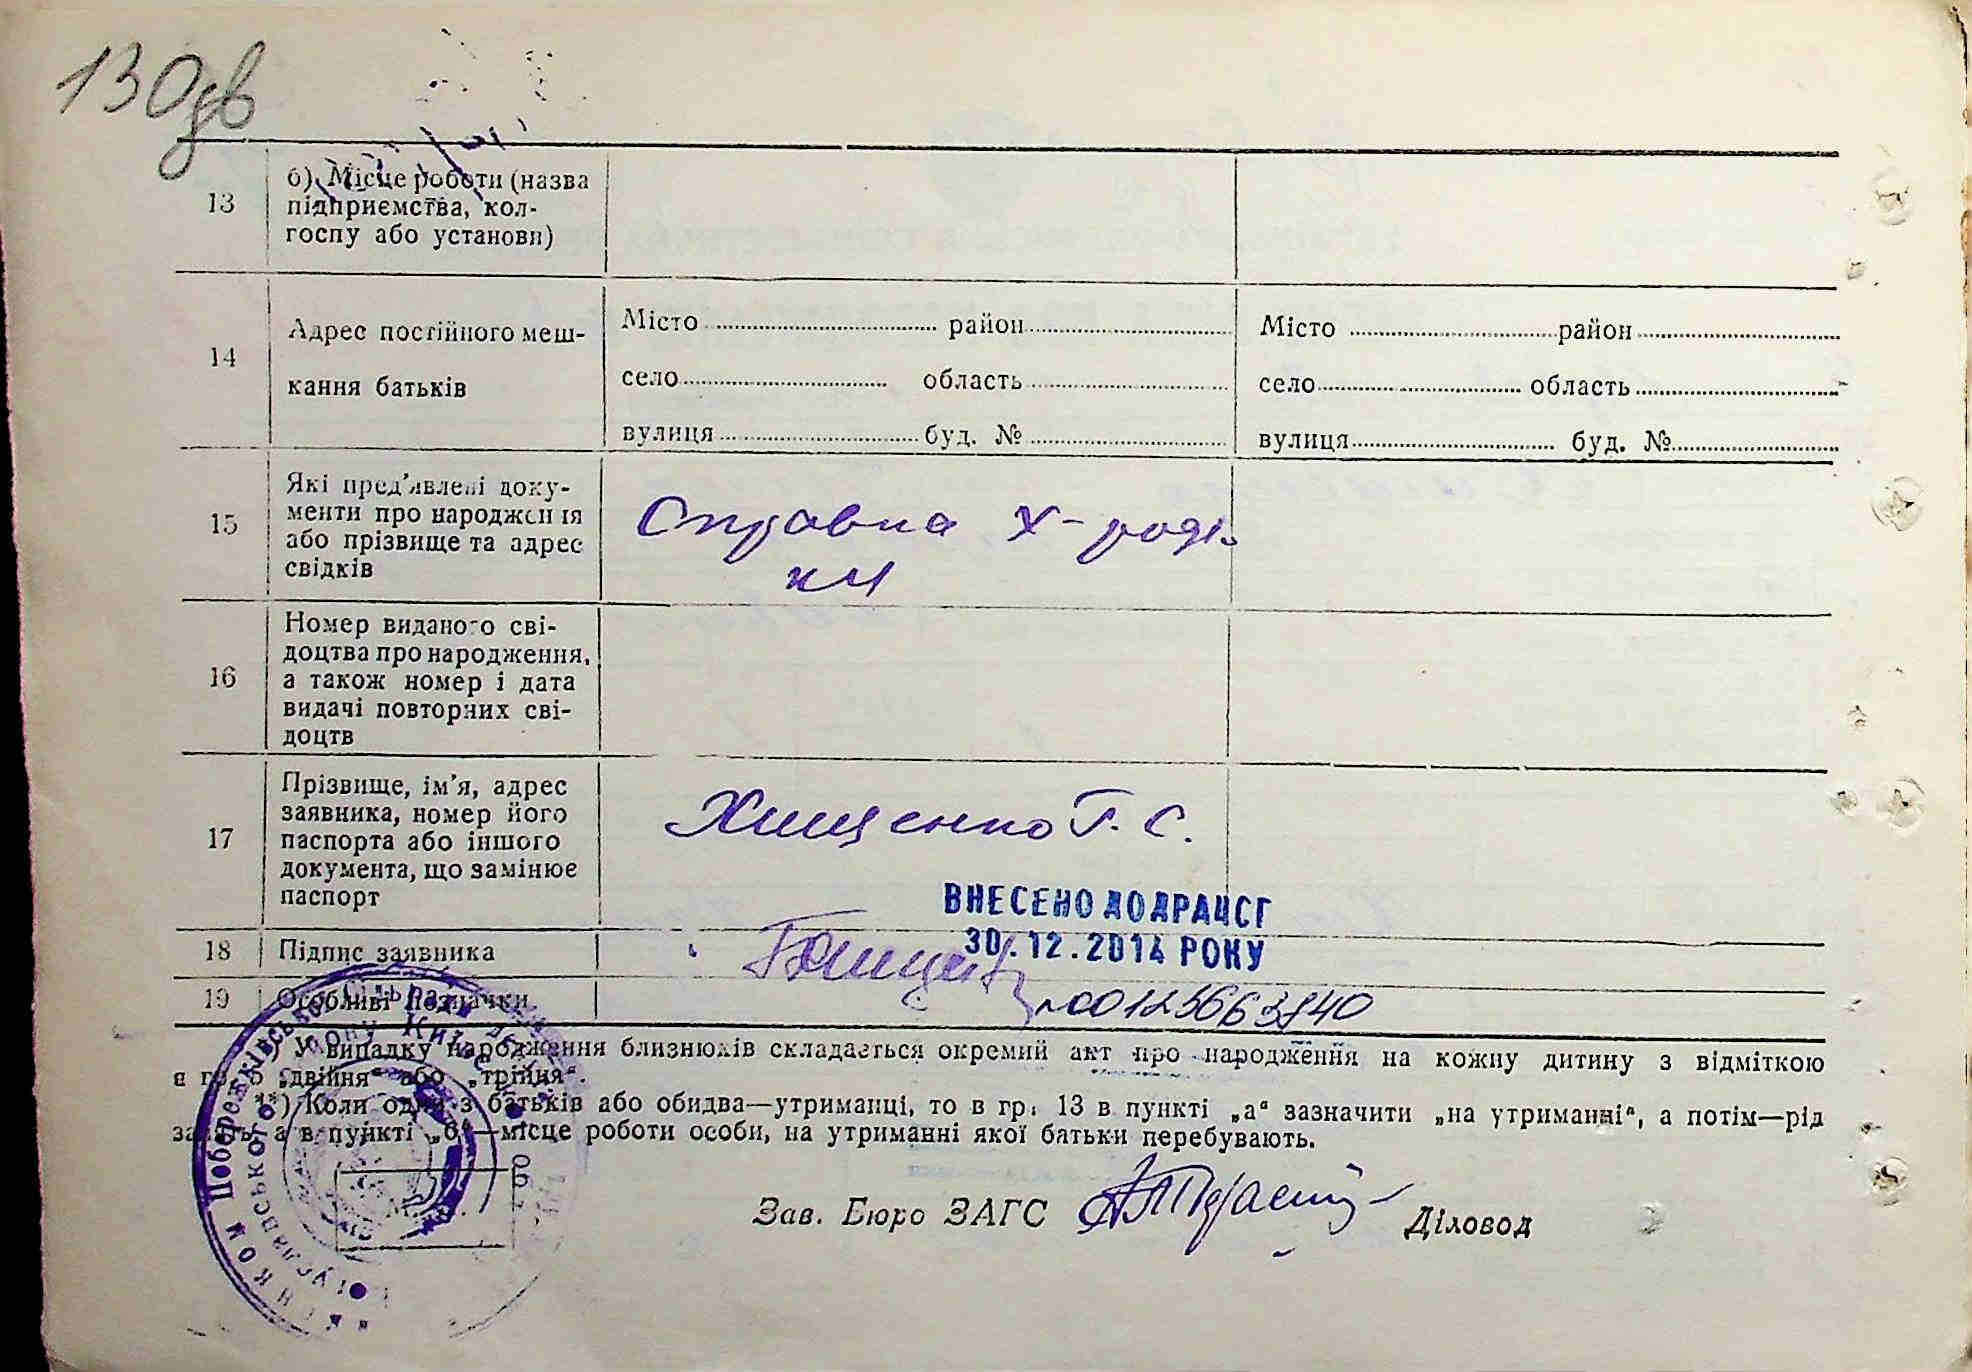 130зв
13
б) Місце роботи (назва
підприємства, кол-
госпу або установи)
14
Адрес постійного меш-
кання батьків
Місто район
село область
вулиця буд. №
Місто район
село область
вулиця буд. №
15
Які пред'явлені доку-
менти про народження
або прізвище та адрес
свідків
Справка х-роді-
лки
16
Номер виданого сві-
доцтва про народження,
а також номер і дата
видачі повторних сві-
доцтв
17
Прізвище, ім'я, адрес
заявника, номер його
паспорта або іншого
документа, що замінює
паспорт
Хищенко Г. С.
ВНЕСЕНО ДО ДРАЦСГ
30.12.2014 РОКУ
18
Підпис заявника
19
Особливі позначки
00125663840
У випадку народження близнюків складається окремий акт про народження на кожну дитину з відміткою
в гр. 5 „двійня“ або „трійня“.
*) Коли один з батьків або обидва—утриманці, то в гр. 13 в пункті „а“ зазначити „на утриманні“, а потім—рід
занять, а в пункті „б“—місце роботи особи, на утриманні якої батьки перебувають.
Зав. Бюро ЗАГС
Діловод